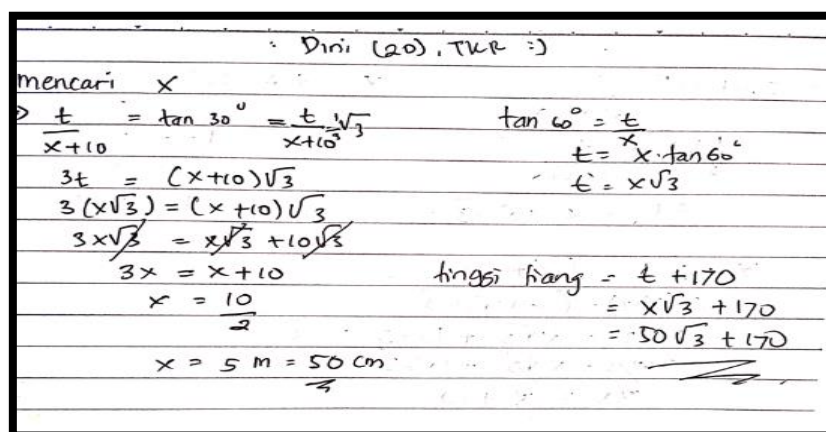 : Dini (20), TKR :)
mencari x
t/(x+10) = tan 30° = t/(x+10) = 1/3 √3
3t = (x+10)√3
3(x√3) = (x+10)√3
3x√3 = x√3 + 10√3
3x = x+10
x = 10/2
x = 5 m = 50 cm
tan 60° = t/x
t = x·tan 60°
t = x√3
tinggi tiang = t + 170
= x√3 + 170
= 50√3 + 170